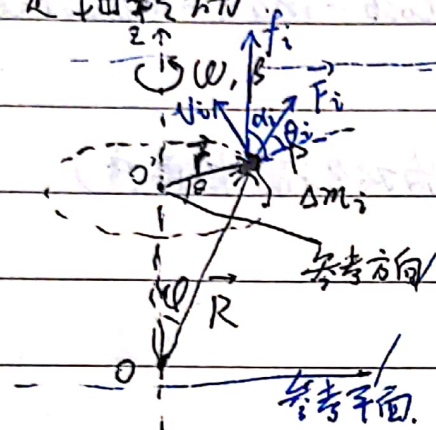 z
ω, β
f_i
F_i
v_i
α_i
θ_i
O'
r
θ
Δm_i
参考方向
φ
R
O
参考平面.